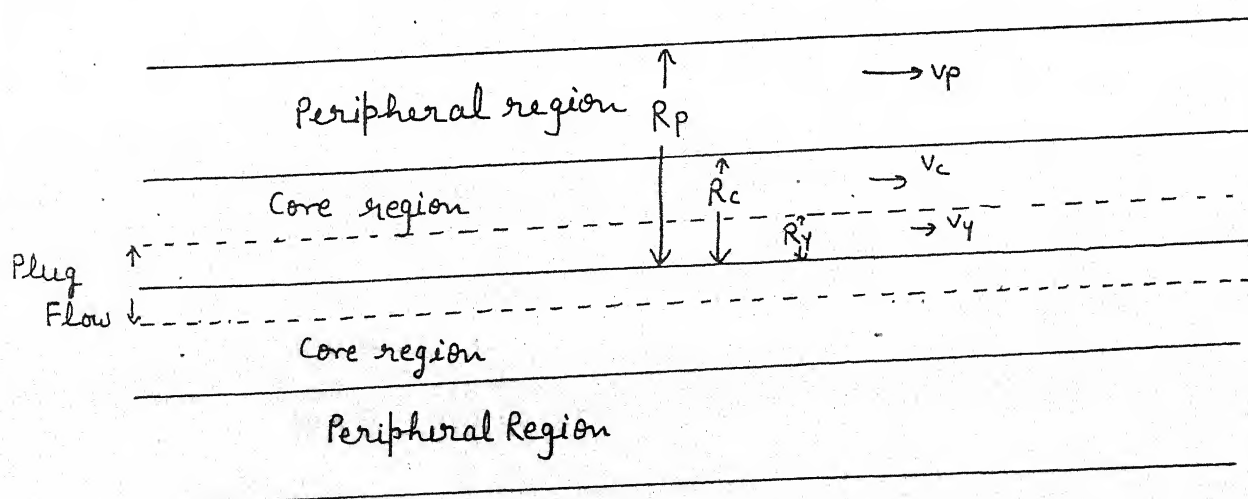 → Vp
Peripheral region Rp
→ Vc
Core region Rc
Ry → Vy
Plug
Flow
Core region
Peripheral Region